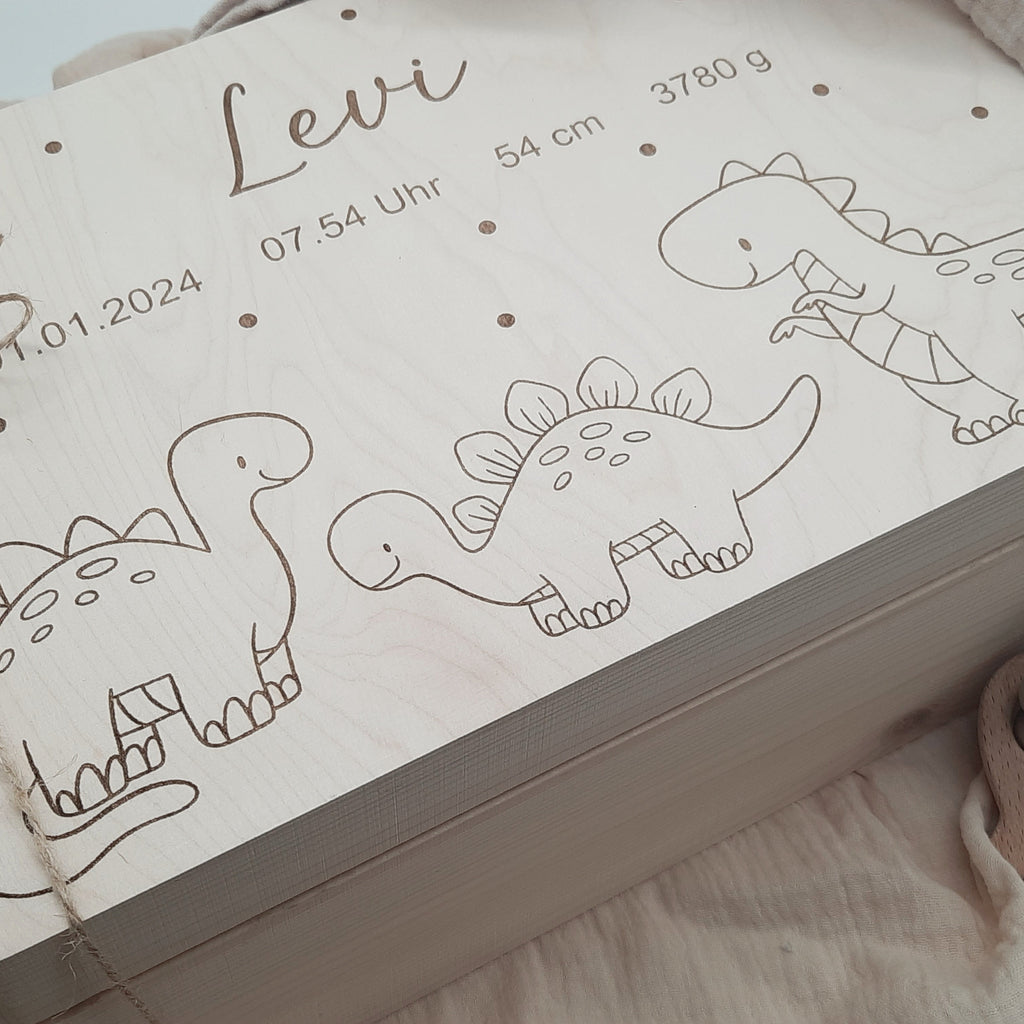 Levi
01.01.2024 07.54 Uhr 54 cm 3780 g